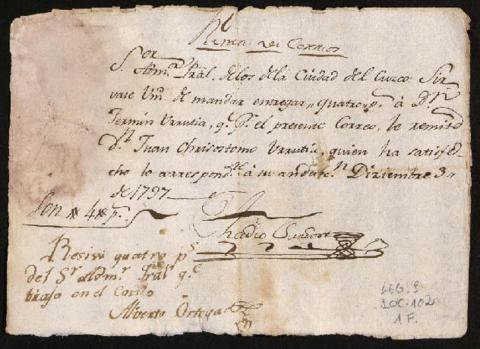 Rl Renta de Correos
Sor Admor Pral. de los de la Ciudad del Cuzco Sir
vase Vm. de mandar entregar quatro p.s â Dn
Fermin Urrutia, q.e Pr. el presente Correo, le remite
dn Juan Chrisostomo Urrutia, quien ha satisfe
cho lo correspondte â su
Diziembre 3
de 1797
Son # 4 # ps.
Thadeo
Resivi quatro ps
del Sr. Admor Pral qe
en el Correo
Alberto Ortega
LEG. 9
DOC. 102
1 F.